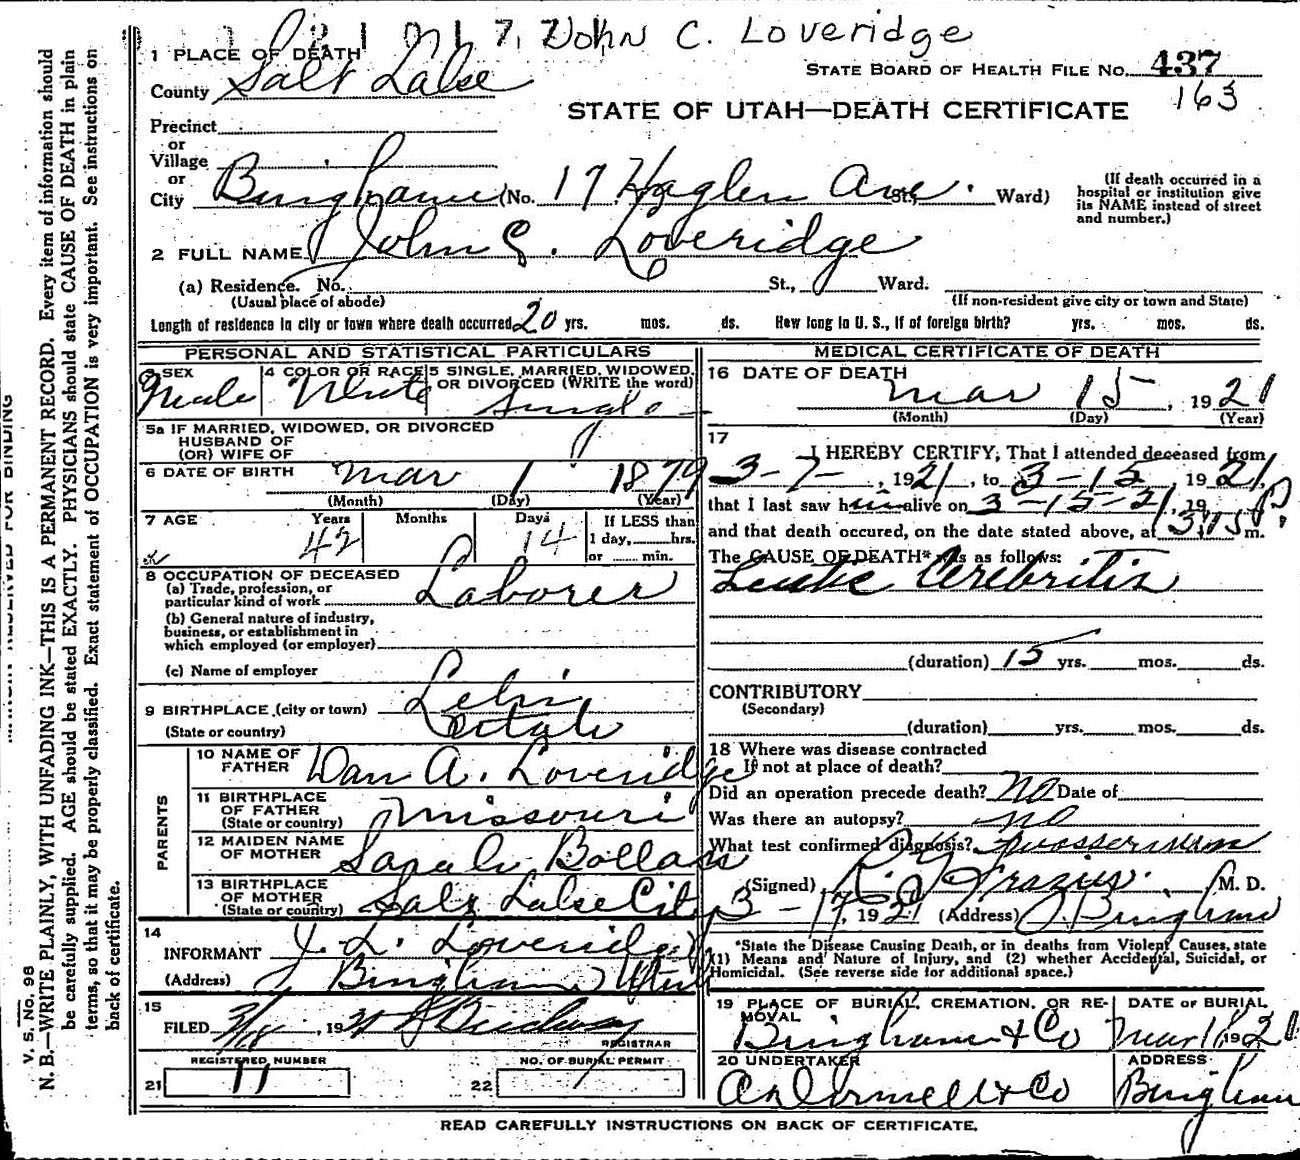 John C. Loveridge
1 PLACE OF DEATH
STATE BOARD OF HEALTH FILE No. 437
County Salt Lake
163
STATE OF UTAH—DEATH CERTIFICATE
Precinct
or
Village
or
City Bingham (No. 17 Haglen Ave. St., Ward)
(If death occurred in a hospital or institution give its NAME instead of street and number.)
2 FULL NAME John C. Loveridge
(a) Residence. No. St., Ward.
(Usual place of abode) (If non-resident give city or town and State)
Length of residence in city or town where death occurred 20 yrs. mos. ds. How long in U. S., if of foreign birth? yrs. mos. ds.
PERSONAL AND STATISTICAL PARTICULARS
3 SEX Male
4 COLOR OR RACE White
5 SINGLE, MARRIED, WIDOWED, OR DIVORCED (WRITE the word) Single
5a IF MARRIED, WIDOWED, OR DIVORCED
HUSBAND OF
(OR) WIFE OF
6 DATE OF BIRTH Mar 1 1879
(Month) (Day) (Year)
7 AGE Years Months Days If LESS than
42 14 1 day, hrs.
or min.
8 OCCUPATION OF DECEASED
(a) Trade, profession, or
particular kind of work Laborer
(b) General nature of industry,
business, or establishment in
which employed (or employer)
(c) Name of employer
9 BIRTHPLACE (city or town) Lehi
(State or country) Utah
PARENTS
10 NAME OF FATHER Dan A. Loveridge
11 BIRTHPLACE OF FATHER (State or country) Missouri
12 MAIDEN NAME OF MOTHER Sarah
13 BIRTHPLACE OF MOTHER (State or country) Salt Lake City
14
INFORMANT J. L. Loveridge
(Address) Bingham Utah
15
FILED 3/18, 1921
REGISTRAR
REGISTERED NUMBER
21 17
NO. OF BURIAL PERMIT
22
MEDICAL CERTIFICATE OF DEATH
16 DATE OF DEATH
Mar 15, 1921
(Month) (Day) (Year)
17
I HEREBY CERTIFY, That I attended deceased from
3-7-, 1921, to 3-15, 1921,
that I last saw him alive on 3-15-21, 19
and that death occured, on the date stated above, at 3:15 P. m.
The CAUSE OF DEATH* was as follows:
Luetic Cerebritis
(duration) 15 yrs. mos. ds.
CONTRIBUTORY
(Secondary)
(duration) yrs. mos. ds.
18 Where was disease contracted
If not at place of death?
Did an operation precede death? No Date of
Was there an autopsy? no
What test confirmed diagnosis?
(Signed) Frazier M. D.
3-17, 1921 (Address) Bingham
*State the Disease Causing Death, or in deaths from Violent Causes, state
(1) Means and Nature of Injury, and (2) whether Accidental, Suicidal, or
Homicidal. (See reverse side for additional space.)
19 PLACE OF BURIAL, CREMATION, OR REMOVAL
Bingham & Co
DATE OF BURIAL
20 UNDERTAKER
& Co
ADDRESS
Bingham
READ CAREFULLY INSTRUCTIONS ON BACK OF CERTIFICATE.
V. S. NO. 98
N. B.—WRITE PLAINLY, WITH UNFADING INK—THIS IS A PERMANENT RECORD. Every item of information should
be carefully supplied. AGE should be stated EXACTLY. PHYSICIANS should state CAUSE OF DEATH in plain
terms, so that it may be properly classified. Exact statement of OCCUPATION is very important. See instructions on
back of certificate.